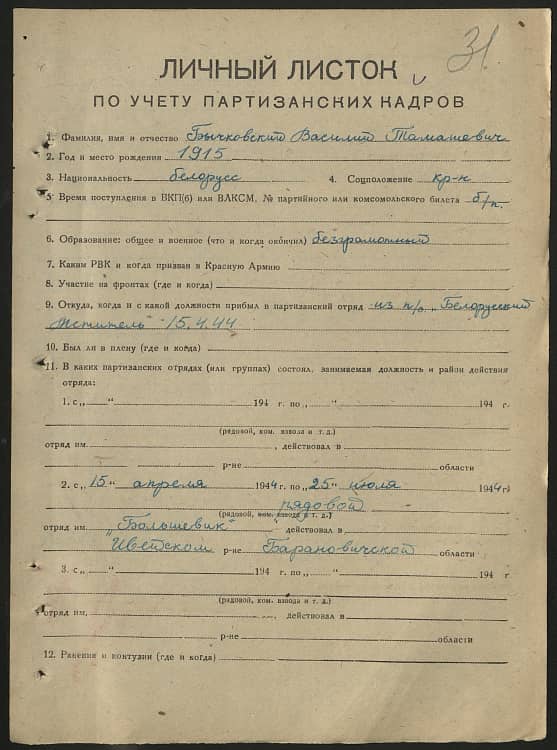 31.
ЛИЧНЫЙ ЛИСТОК
ПО УЧЕТУ ПАРТИЗАНСКИХ КАДРОВ
1. Фамилия, имя и отчество Бычковский Василий Тамашевич
2. Год и место рождения 1915
3. Национальность белорусс 4. Соцположение кр-н
5. Время поступления в ВКП(б) или ВЛКСМ, № партийного или комсомольского билета б/п.
6. Образование: общее и военное (что и когда окончил) безграмотный
7. Каким РВК и когда призван в Красную Армию
8. Участие на фронтах (где и когда)
9. Откуда, когда и с какой должности прибыл в партизанский отряд из п/о. „Белорусский
мститель" 15.4.44
10. Был ли в плену (где и когда)
11. В каких партизанских отрядах (или группах) состоял, занимаемая должность и район действия
отряда:
1. с „ “ 194 г. по „ “ 194 г.
(рядовой, ком. взвода и т. д.)
отряд им. , действовал в
р-не области
2. с „15“ апреля 1944 г. по „25“ июля 1944 г.
рядовой
(рядовой, ком. взвода и т. д.)
отряд им. „Большевик" действовал в
Иветском р-не Барановичской области
3. с „ “ 194 г. по „ “ 194 г.
(рядовой, ком. взвода и т. д.)
отряд им. , действовал в
р-не области
12. Ранения и контузии (где и когда)